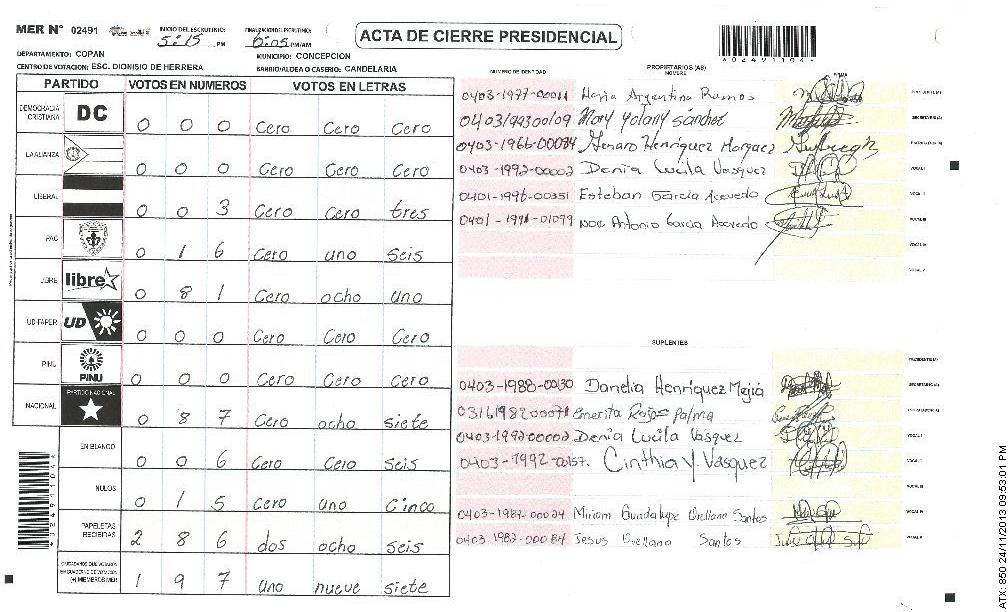 MER Nº 02491
INICIO DEL ESCRUTINIO: 5:15 PM
FINALIZACION DEL ESCRUTINIO: 6:05 PM/AM
ACTA DE CIERRE PRESIDENCIAL
DEPARTAMENTO: COPAN
MUNICIPIO: CONCEPCION
CENTRO DE VOTACION: ESC. DIONISIO DE HERRERA
BARRIO/ALDEA O CASERIO: CANDELARIA
PARTIDO VOTOS EN NUMEROS VOTOS EN LETRAS
DEMOCRACIA CRISTIANA DC 0 0 0 Cero Cero Cero
LA ALIANZA 0 0 0 Cero Cero Cero
LIBERAL 0 0 3 Cero Cero tres
PAC 0 1 6 Cero uno seis
LIBRE libre 0 8 1 Cero ocho uno
UD-FAPER UD 0 0 0 Cero Cero Cero
PINU PINU 0 0 0 Cero Cero Cero
NACIONAL PARTIDO NACIONAL 0 8 7 Cero ocho siete
EN BLANCO 0 0 6 Cero Cero Seis
NULOS 0 1 5 Cero uno Cinco
PAPELETAS RECIBIDAS 2 8 6 dos ocho seis
CIUDADANOS QUE VOTARON EN CUADERNO DE VOTACION (+) MIEMBROS MER 1 9 7 uno nueve siete
NUMERO DE IDENTIDAD
PROPIETARIOS (AS)
NOMBRE
FIRMA
Argentina Ramos
Mary Yolany Sanchez
0403-1966-00084 Genaro Henriquez Marquez
0403-1992-00002 Denia Lucila Vasquez
0401-1996-00351 Esteban Garcia Acevedo
Antonio Garcia Acevedo
SUPLENTES
0403-1988-00130 Danelia Henriquez Mejia
Emerita Rojas Palma
0403-1992-00002 Denia Lucila Vasquez
0403-1992-00157. Cinthia Y. Vasquez
0403-1987-00024 Miriam Guadalupe Orellana Santos
0403-1982-00084 Jesus Orellana Santos
*02491104*
*02491104*
ATX: 850 24/11/2013 09:53:01 PM